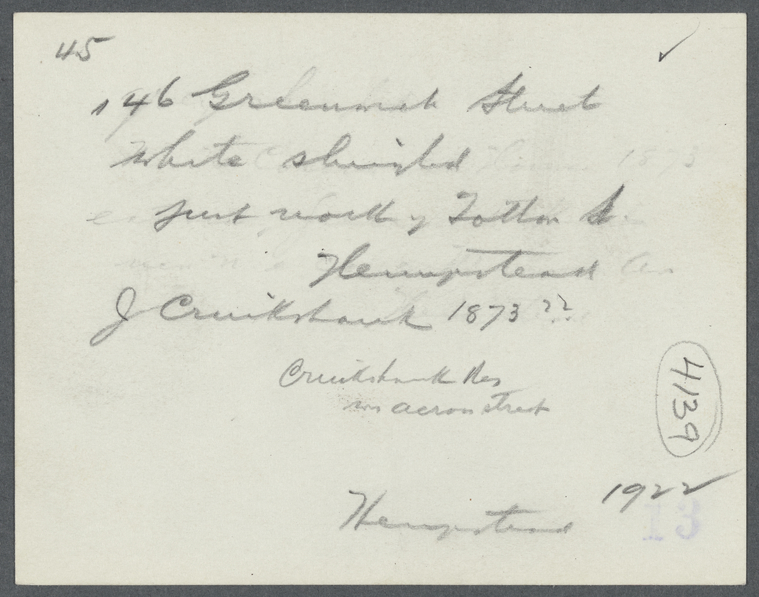 45
146 Greenwich Street
White shingled
just north of Totton St.
Hempstead
J Cruikshank 1873 ??
Cruikshank Res
was across street
4139
1922
Hempstead